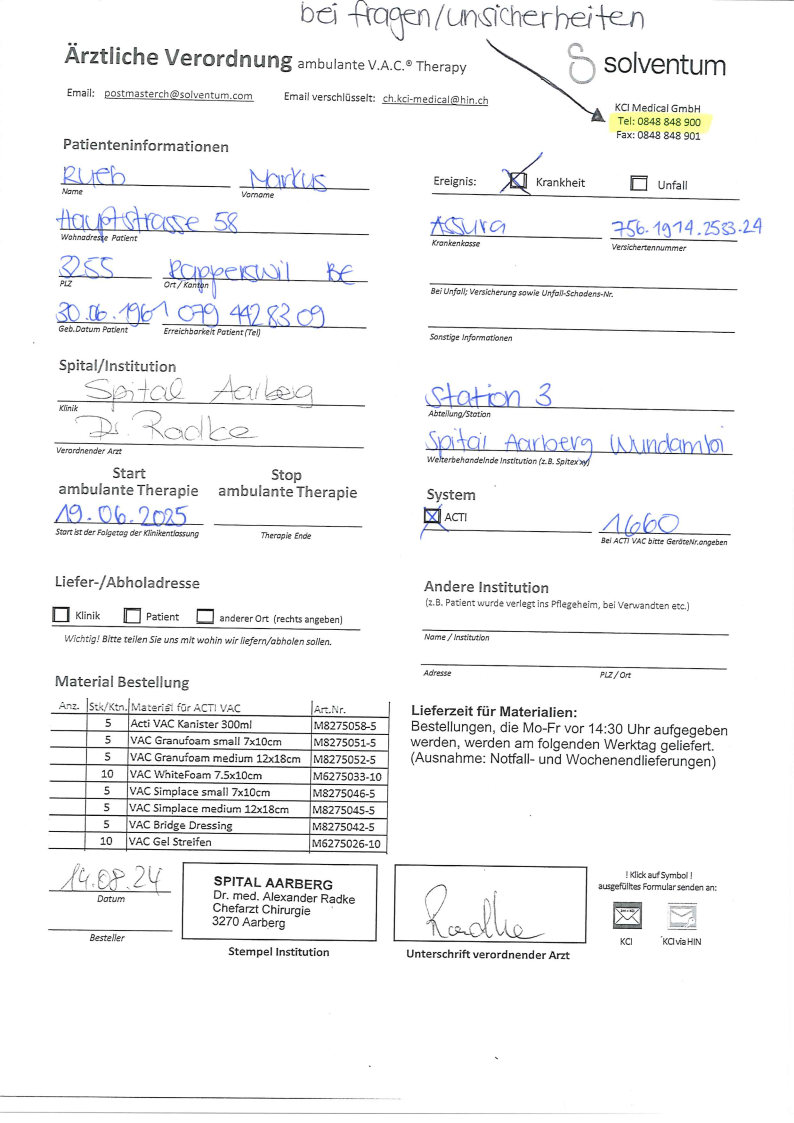 bei fragen/unsicherheiten
Ärztliche Verordnung ambulante V.A.C.® Therapy
solventum
Email: postmasterch@solventum.com Email verschlüsselt: ch.kci-medical@hin.ch
KCI Medical GmbH
Tel: 0848 848 900
Fax: 0848 848 901
Patienteninformationen
Rueb Markus
Name Vorname
Ereignis: Krankheit Unfall
Hauptstrasse 58
Wohnadresse Patient
Assura 756.1914.2583.24
Krankenkasse Versichertennummer
3255 Rapperswil BE
PLZ Ort / Kanton
Bei Unfall; Versicherung sowie Unfall-Schadens-Nr.
30.06.1961 079 442 83 09
Geb.Datum Patient Erreichbarkeit Patient (Tel)
Sonstige Informationen
Spital/Institution
Spital Aarberg
Klinik
Station 3
Abteilung/Station
Dr. Radke
Verordnender Arzt
Spital Aarberg Wundambi
Weiterbehandelnde Institution (z.B. Spitex xy)
Start
ambulante Therapie
Stop
ambulante Therapie
System
19.06.2025
Start ist der Folgetag der Klinikentlassung Therapie Ende
ACTI 1660
Bei ACTI VAC bitte GeräteNr.angeben
Liefer-/Abholadresse
Klinik Patient anderer Ort (rechts angeben)
Wichtig! Bitte teilen Sie uns mit wohin wir liefern/abholen sollen.
Andere Institution
(z.B. Patient wurde verlegt ins Pflegeheim, bei Verwandten etc.)
Name / Institution
Adresse PLZ / Ort
Material Bestellung
Anz. Stk/Ktn. Material für ACTI VAC Art.Nr.
5 Acti VAC Kanister 300ml M8275058-5
5 VAC Granufoam small 7x10cm M8275051-5
5 VAC Granufoam medium 12x18cm M8275052-5
10 VAC WhiteFoam 7.5x10cm M6275033-10
5 VAC Simplace small 7x10cm M8275046-5
5 VAC Simplace medium 12x18cm M8275045-5
5 VAC Bridge Dressing M8275042-5
10 VAC Gel Streifen M6275026-10
Lieferzeit für Materialien:
Bestellungen, die Mo-Fr vor 14:30 Uhr aufgegeben
werden, werden am folgenden Werktag geliefert.
(Ausnahme: Notfall- und Wochenendlieferungen)
14.08.24
Datum
Besteller
SPITAL AARBERG
Dr. med. Alexander Radke
Chefarzt Chirurgie
3270 Aarberg
Stempel Institution
Radke
Unterschrift verordnender Arzt
! Klick auf Symbol !
ausgefülltes Formular senden an:
KCI KCI via HIN